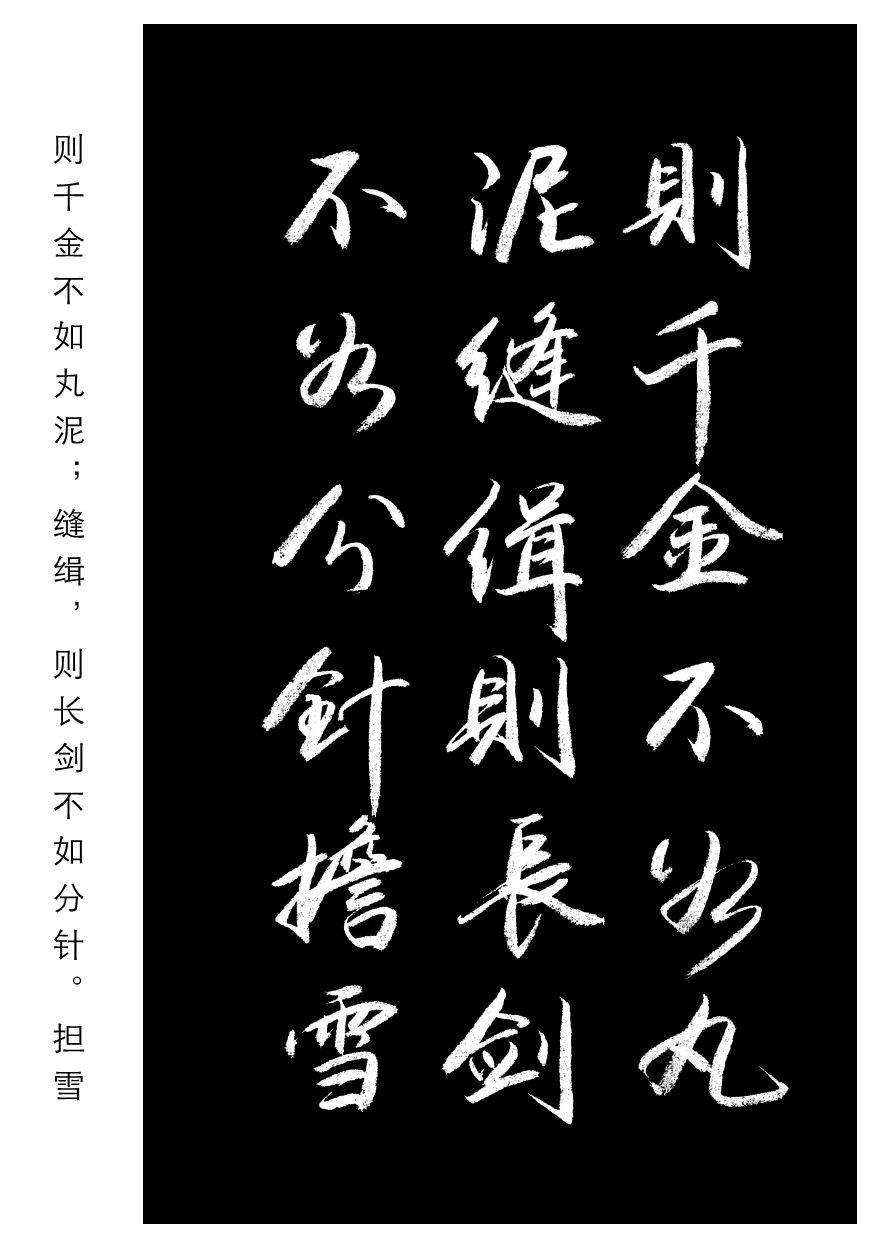 則千金不如丸
泥縫缉則長剑
不如分針擔雪
则千金不如丸泥；缝缉，则长剑不如分针。担雪